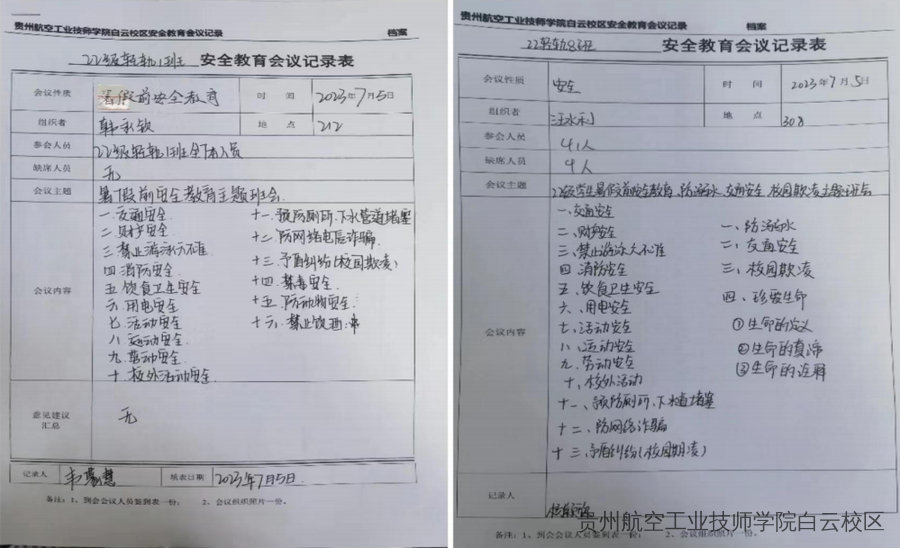 贵州航空工业技师学院白云校区安全教育会议记录 档案
22级轻轨1班 安全教育会议记录表
会议性质 暑假前安全教育 时间 2023年7月5日
组织者 地点 212
参会人员 22级轻轨1班全体人员
缺席人员 无
会议主题 暑假前安全教育主题班会
会议内容
一.交通安全.
二.财产安全.
三.禁止游泳六不准
四.消防安全
五.饮食卫生安全
六.用电安全
七.活动安全
八.运动安全.
九.劳动安全
十.校外活动安全.
十一.预防厕所、下水管道堵塞
十二.防网络电信诈骗.
十三.矛盾纠纷(校园欺凌)
十四.禁毒安全.
十五.防动物安全.
十六.禁止饮酒.
意见建议汇总 无
记录人 填表日期 2023年7月5日.
备注：1、到会会议人员签到表一份； 2、会议组织照片一份。
贵州航空工业技师学院白云校区安全教育会议记录 档案
22轻轨8班 安全教育会议记录表
会议性质 安全 时间 2023年7月5日
组织者 汪水利 地点 308
参会人员 41人
缺席人员 4人
会议主题 22级学生暑假前安全教育、防溺水、交通安全、校园欺凌主题班会
会议内容
一、交通安全
二、财产安全
三、禁止游泳六不准
四、消防安全
五、饮食卫生安全
六、用电安全
七、活动安全
八、运动安全
九、劳动安全
十、校外活动
十一、预防厕所、下水道堵塞
十二、防网络诈骗
十三、矛盾纠纷(校园欺凌)
一、防溺水
二、交通安全
三、校园欺凌
四、珍爱生命
①生命的定义
②生命的真谛
③生命的诠释
记录人
备注：1、到会会议人员签到表一份； 2、会议组织照片一份。
贵州航空工业技师学院白云校区